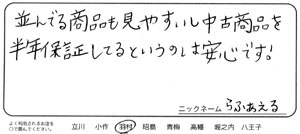 並んでる商品も見やすいし中古商品を
半年保証してるというのは安心です!
ニックネーム らふぁえる
よく利用されるお店を
○で囲んでください。
立川 小作 羽村 昭島 青梅 高幡 堀之内 八王子